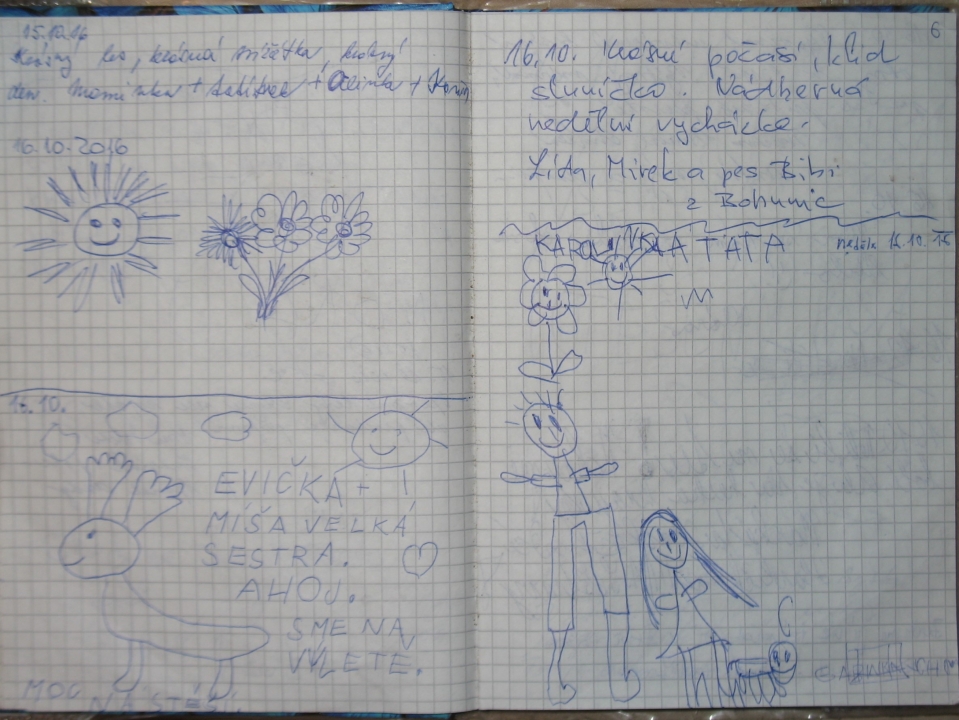 15.10.16
Krásný les, krásná zvířátka, krásný
den. Maminka + + +
16.10.2016
16.10.
EVIČKA + 
MÍŠA VELKÁ
SESTRA.
AHOJ.
SME NA
VÝLETE.
MOC
NA STĚSÍ
6
16.10. Krásné počasí, klid
sluníčko. Nádherná
nedělní vycházka.
Lída, Mirek a pes Bibi
z Bohunic
KAROLINKA A TÁTA
neděle 16.10.16